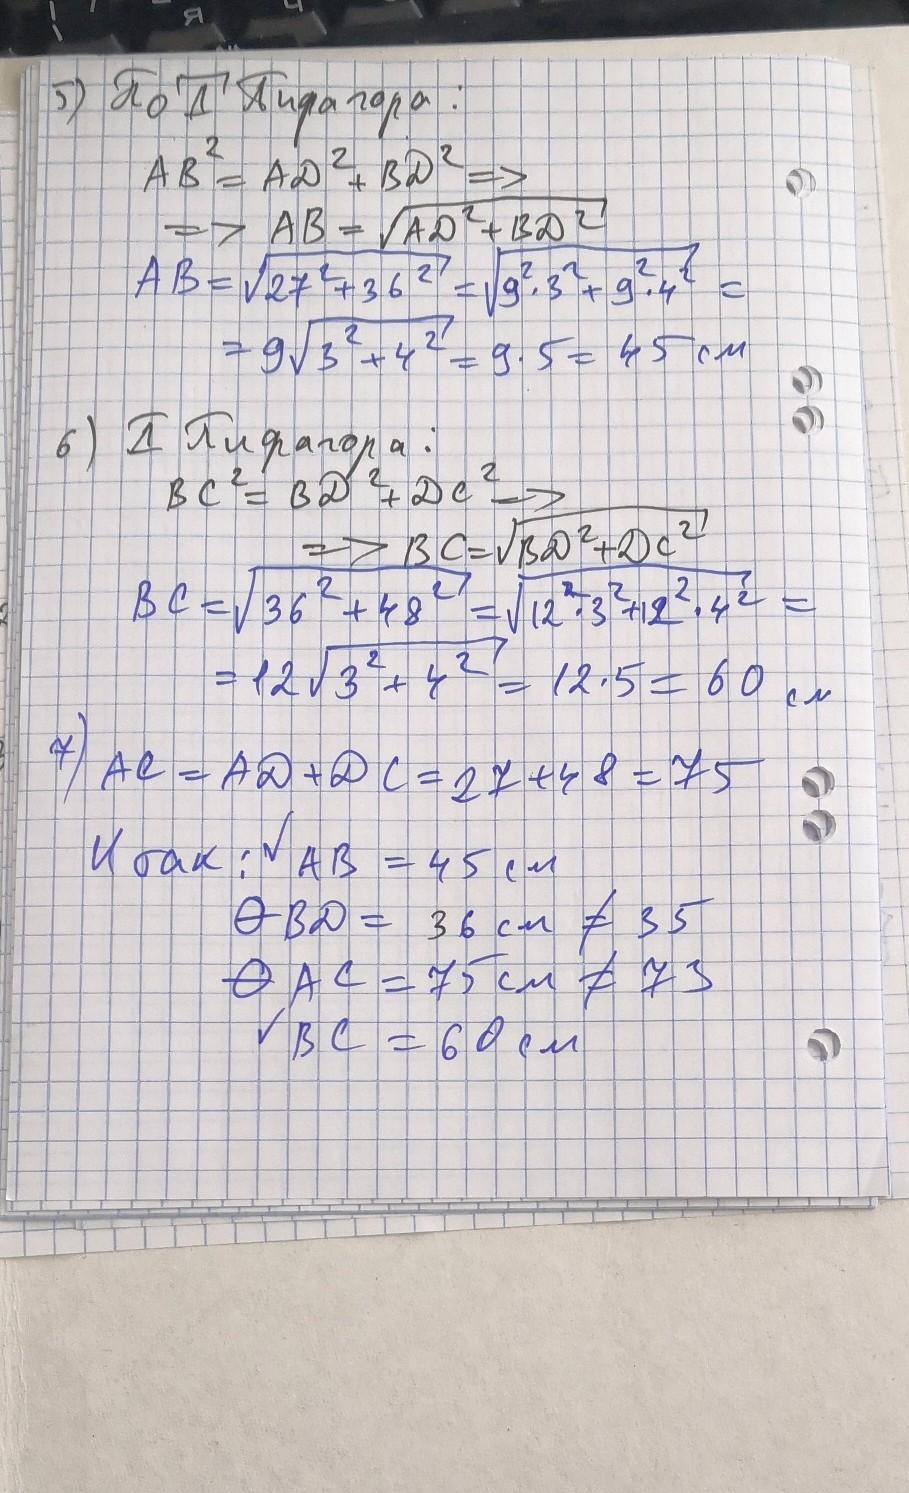 5) По Т Пифагора:
AB² = AD² + BD² =>
=> AB = √(AD² + BD²)
AB = √(27² + 36²) = √(9²·3² + 9²·4²) =
= 9√(3² + 4²) = 9·5 = 45 см
6) Т Пифагора:
BC² = BD² + DC² =>
=> BC = √(BD² + DC²)
BC = √(36² + 48²) = √(12²·3² + 12²·4²) =
= 12√(3² + 4²) = 12·5 = 60 см
7) AC = AD + DC = 27 + 48 = 75
Итак: ✓ AB = 45 см
⊖ BD = 36 см ≠ 35
⊖ AC = 75 см ≠ 73
✓ BC = 60 см